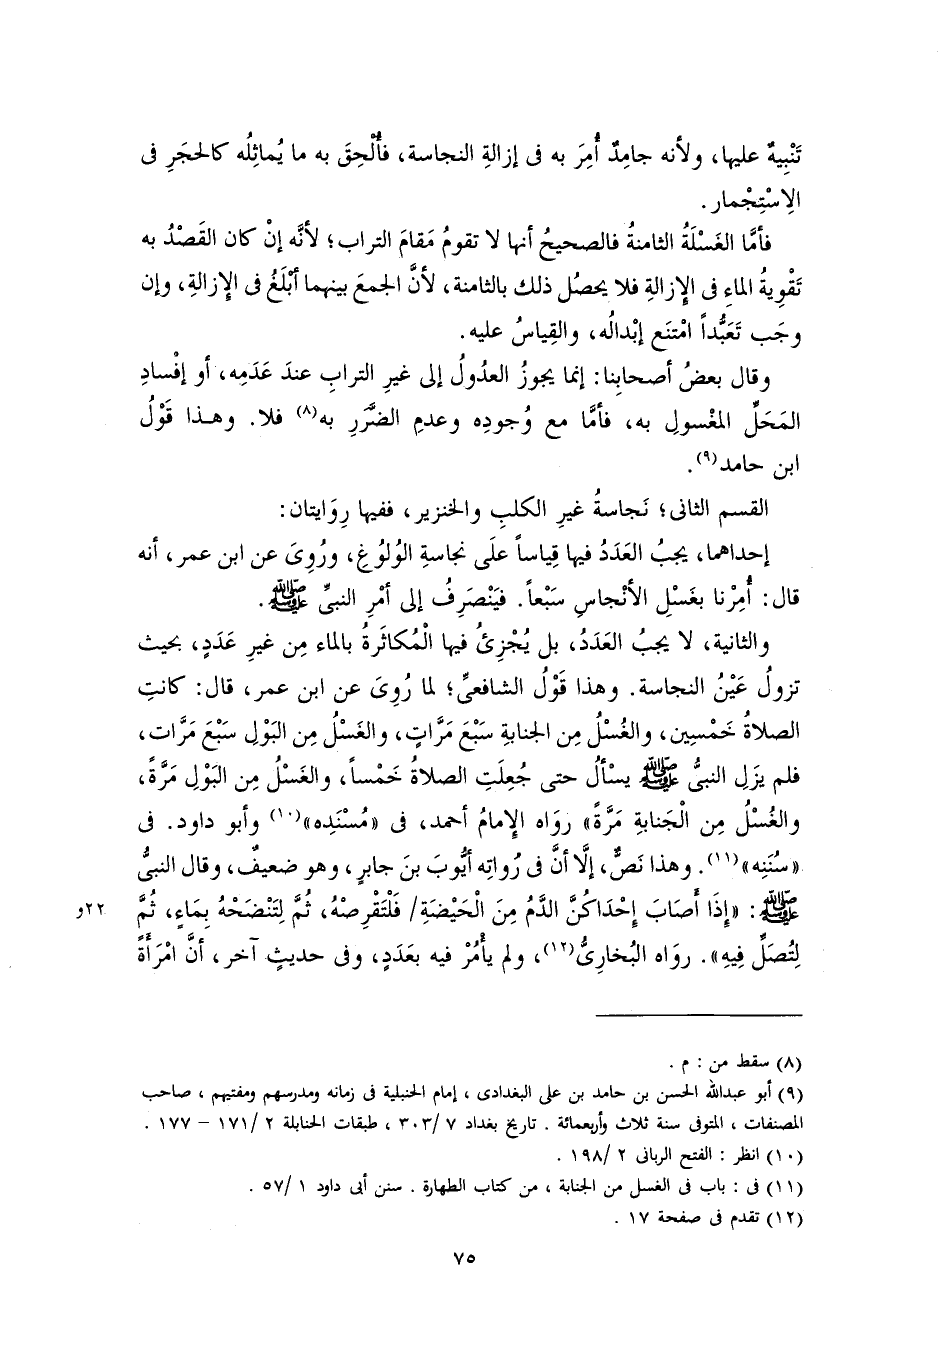 تَنْبِيهٌ عليها، ولأنه جامِدٌ أُمِرَ به فى إزالةِ النجاسة، فأُلْحِقَ به ما يُماثِلُه كالحَجَرِ فى
الِاسْتِجْمار.
فأمَّا الغَسْلَةُ الثامنةُ فالصحيحُ أنها لا تقومُ مَقامَ التراب؛ لأنَّه إنْ كان القَصْدُ به
تَقْوِيةُ الماءِ فى الإزالةِ فلا يحصُل ذلك بالثامنة، لأنَّ الجمعَ بينهما أبْلَغُ فى الإزالةِ، وإن
وجَب تَعَبُّداً امْتَنَع إبْدالُه، والقِياسُ عليه.
وقال بعضُ أصحابِنا: إنما يجوزُ العدُولُ إلى غيرِ الترابِ عندَ عَدَمِه، أو إفْسادِ
المَحَلِّ المغْسولِ به، فأمَّا مع وُجودِه وعدمِ الضَّرَرِ به(٨) فلا. وهـذا قَوْلُ
ابن حامد(٩).
القسم الثانى؛ نَجاسةُ غيرِ الكلبِ والخنزير، ففيها رِوَايتان:
إحداهما، يجبُ العَدَدُ فيها قِياساً علَى نجاسةِ الوُلوُغِ، ورُوِىَ عن ابن عمر، أنه
قال: أُمِرْنا بغَسْلِ الأنْجاسِ سَبْعاً. فيَنْصَرِفُ إلى أمْرِ النبىِّ ﷺ.
والثانية، لا يجبُ العَدَدُ، بل يُجْزِئُ فيها الْمُكاثَرةُ بالماء مِن غيرِ عَدَدٍ، بحيث
تزولُ عَيْنُ النجاسة. وهذا قَوْلُ الشافعىِّ؛ لما رُوِىَ عن ابن عمر، قال: كانتِ
الصلاةُ خَمْسِين، والغُسْلُ مِن الجنابةِ سَبْعَ مَرَّاتٍ، والغَسْلُ مِن البَوْلِ سَبْعَ مَرَّات،
فلم يزَلِ النبىُّ ﷺ يسألُ حتى جُعِلَتِ الصلاةُ خَمْساً، والغَسْلُ مِن البَوْلِ مَرَّةً،
والغُسْلُ مِن الْجَنابةِ مَرَّةً» روَاه الإمامُ أحمد، فى «مُسْنَدِه»(١٠) وأبو داود. فى
«سُنَنِه»(١١). وهذا نَصٌّ، إلَّا أنَّ فى رُواتِه أيُّوبَ بنَ جابرٍ، وهو ضعيفٌ، وقال النبىُّ
ﷺ: «إِذَا أَصَابَ إِحْدَاكُنَّ الدَّمُ مِنَ الْحَيْضَةِ/ فَلْتَقْرِصْهُ، ثُمَّ لِتَنْضَحْهُ بِمَاءٍ، ثُمَّ
٢٢و
لِتُصَلِّ فِيهِ». روَاه البُخارِىُّ(١٢)، ولم يأْمُرْ فيه بعَدَدٍ، وفى حديثٍ آخر، أنَّ امْرَأةً
(٨) سقط من : م .
(٩) أبو عبدالله الحسن بن حامد بن على البغدادى ، إمام الحنبلية فى زمانه ومدرسهم ومفتيهم ، صاحب
المصنفات ، المتوفى سنة ثلاث وأربعمائة . تاريخ بغداد ٧ /٣٠٣ ، طبقات الحنابلة ٢ /١٧١ – ١٧٧ .
(١٠) انظر : الفتح الربانى ٢ /١٩٨ .
(١١) فى : باب فى الغسل من الجنابة ، من كتاب الطهارة . سنن أبى داود ١ /٥٧ .
(١٢) تقدم فى صفحة ١٧ .
٧٥